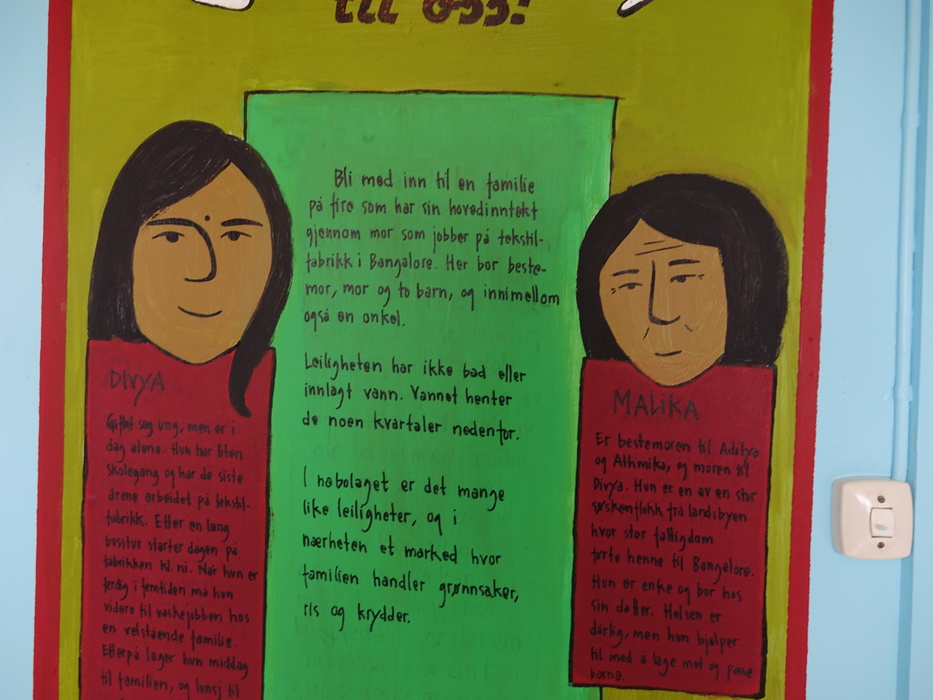 til oss!
Bli med inn til en familie
på fire som har sin hovedinntekt
gjennom mor som jobber på tekstil-
fabrikk i Bangalore. Her bor beste-
mor, mor og to barn, og innimellom
også en onkel.
Leiligheten har ikke bad eller
innlagt vann. Vannet henter
de noen kvartaler nedenfor.
I nabolaget er det mange
like leiligheter, og i
nærheten et marked hvor
familien handler grønnsaker,
ris og krydder.
DIVYA
Giftet seg ung, men er i
dag alene. Hun har liten
skolegang og har de siste
årene arbeidet på tekstil-
fabrikk. Etter en lang
busstur starter dagen på
fabrikken kl. ni. Når hun er
ferdig i femtiden må hun
videre til vaskejobben hos
en velstående familie.
Etterpå lager hun middag
til familien, og lunsj til
MALIKA
Er bestemoren til Aditya
og Athmika, og moren til
Divya. Hun er en av en stor
søskenflokk fra landsbyen
hvor stor fattigdom
førte henne til Bangalore.
Hun er enke og bor hos
sin datter. Helsen er
dårlig, men hun hjelper
til med å lage mat og passe
barna.